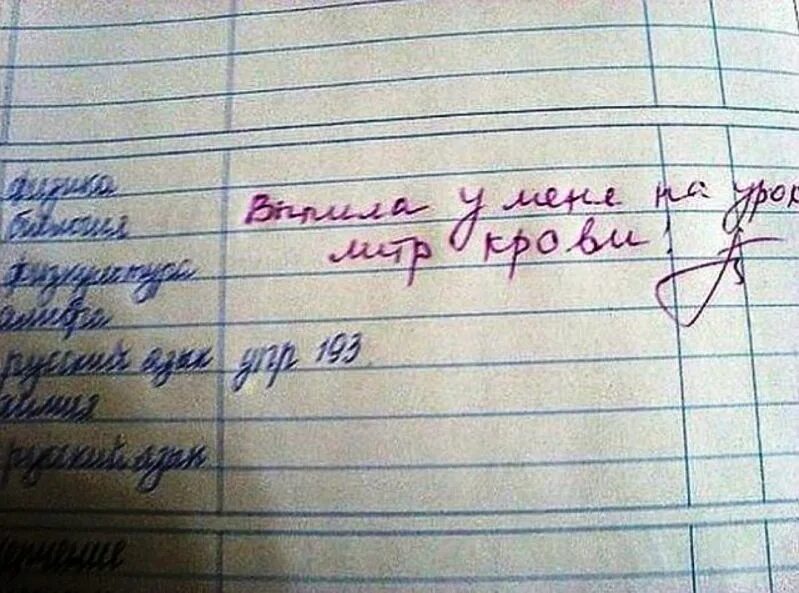 физика
биология
Выпила у меня на урок
литр крови!
физкультура
алгебра
русский язык упр 193
химия
русский язык
черчение